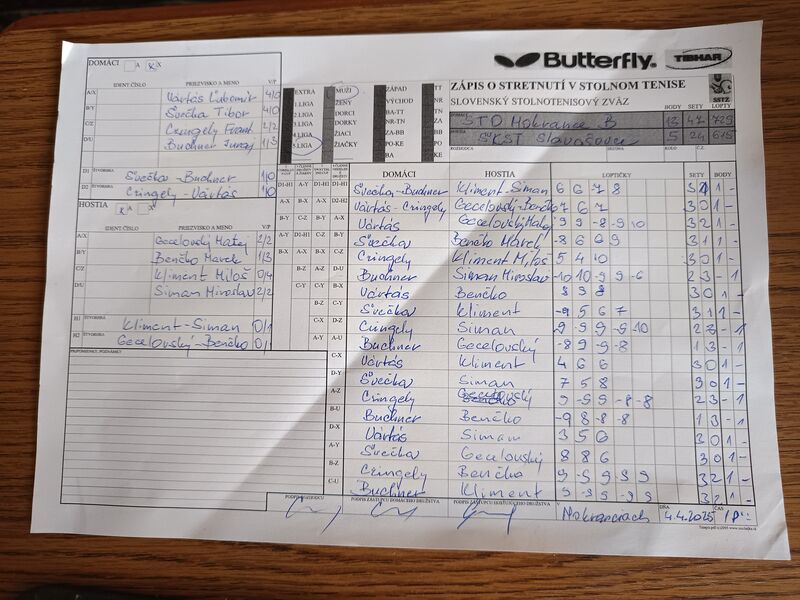 Butterfly.
TIBHAR
ZÁPIS O STRETNUTÍ V STOLNOM TENISE
SLOVENSKÝ STOLNOTENISOVÝ ZVÄZ
SSTZ
BODY SETY LOPTY
STO Mokrance B 13 47 729
ŠKST Slavošovce 5 24 615
DOMÁCI A X
IDENT. ČÍSLO PRIEZVISKO A MENO V/P
A/X Vártás Ľubomír 4/0
B/Y Svečka Tibor 4/0
C/Z Cringely Frant. 2/2
D/U Buchner Juraj 1/3
D1 Svečka - Buchner 1/0
D2 Cringely - Vártás 1/0
HOSTIA A X
IDENT. ČÍSLO PRIEZVISKO A MENO V/P
A/X Gecelovský Matej 2/2
B/Y Benčko Marek 1/3
C/Z Kliment Miloš 0/4
D/U Siman Miroslav 2/2
H1 ŠTVORHRA Kliment - Siman 0/1
H2 ŠTVORHRA Gecelovský - Benčko 0/1
EXTRA MUŽI ZÁPAD TT
1.LIGA ŽENY VÝCHOD TN
2.LIGA DORCI BA-TT NR
3.LIGA DORKY NR-TN ZA
4.LIGA ŽIACI ZA-BB BB
5.LIGA ŽIAČKY PO-KE PO
BA KE
DOMÁCI HOSTIA LOPTIČKY SETY BODY
Svečka - Buchner Kliment - Siman 6 6 7 8 3 1 1 -
Vártás - Cringely Gecelovský - Benčko 7 6 7 3 0 1 -
Vártás Gecelovský Matej 9 9 -8 -9 10 3 2 1 -
Svečka Benčko Marek -8 6 6 9 3 1 1 -
Cringely Kliment Miloš 5 4 10 3 0 1 -
Buchner Siman Miroslav -10 10 9 -9 -6 2 3 - 1
Vártás Benčko 8 9 8 3 0 1 -
Svečka Kliment -9 5 6 7 3 1 1 -
Cringely Siman -9 -9 9 -9 10 2 3 - 1
Buchner Gecelovský -8 9 -9 -8 1 3 - 1
Vártás Kliment 4 6 6 3 0 1 -
Svečka Siman 7 5 8 3 0 1 -
Cringely Gecelovský 9 -9 9 -8 -8 2 3 - 1
Buchner Benčko -9 8 -8 -8 1 3 - 1
Vártás Siman 3 5 6 3 0 1 -
Svečka Gecelovský 8 8 6 3 0 1 -
Cringely Benčko 9 -9 -9 9 9 3 2 1 -
Buchner Kliment 9 -9 9 -9 9 3 2 1 -
PODPIS ROZHODCU PODPIS ZÁSTUPCU DOMÁCEHO DRUŽSTVA PODPIS ZÁSTUPCU HOSŤUJÚCEHO DRUŽSTVA
V Mokranciach DŇA 4.4.2025 ČAS